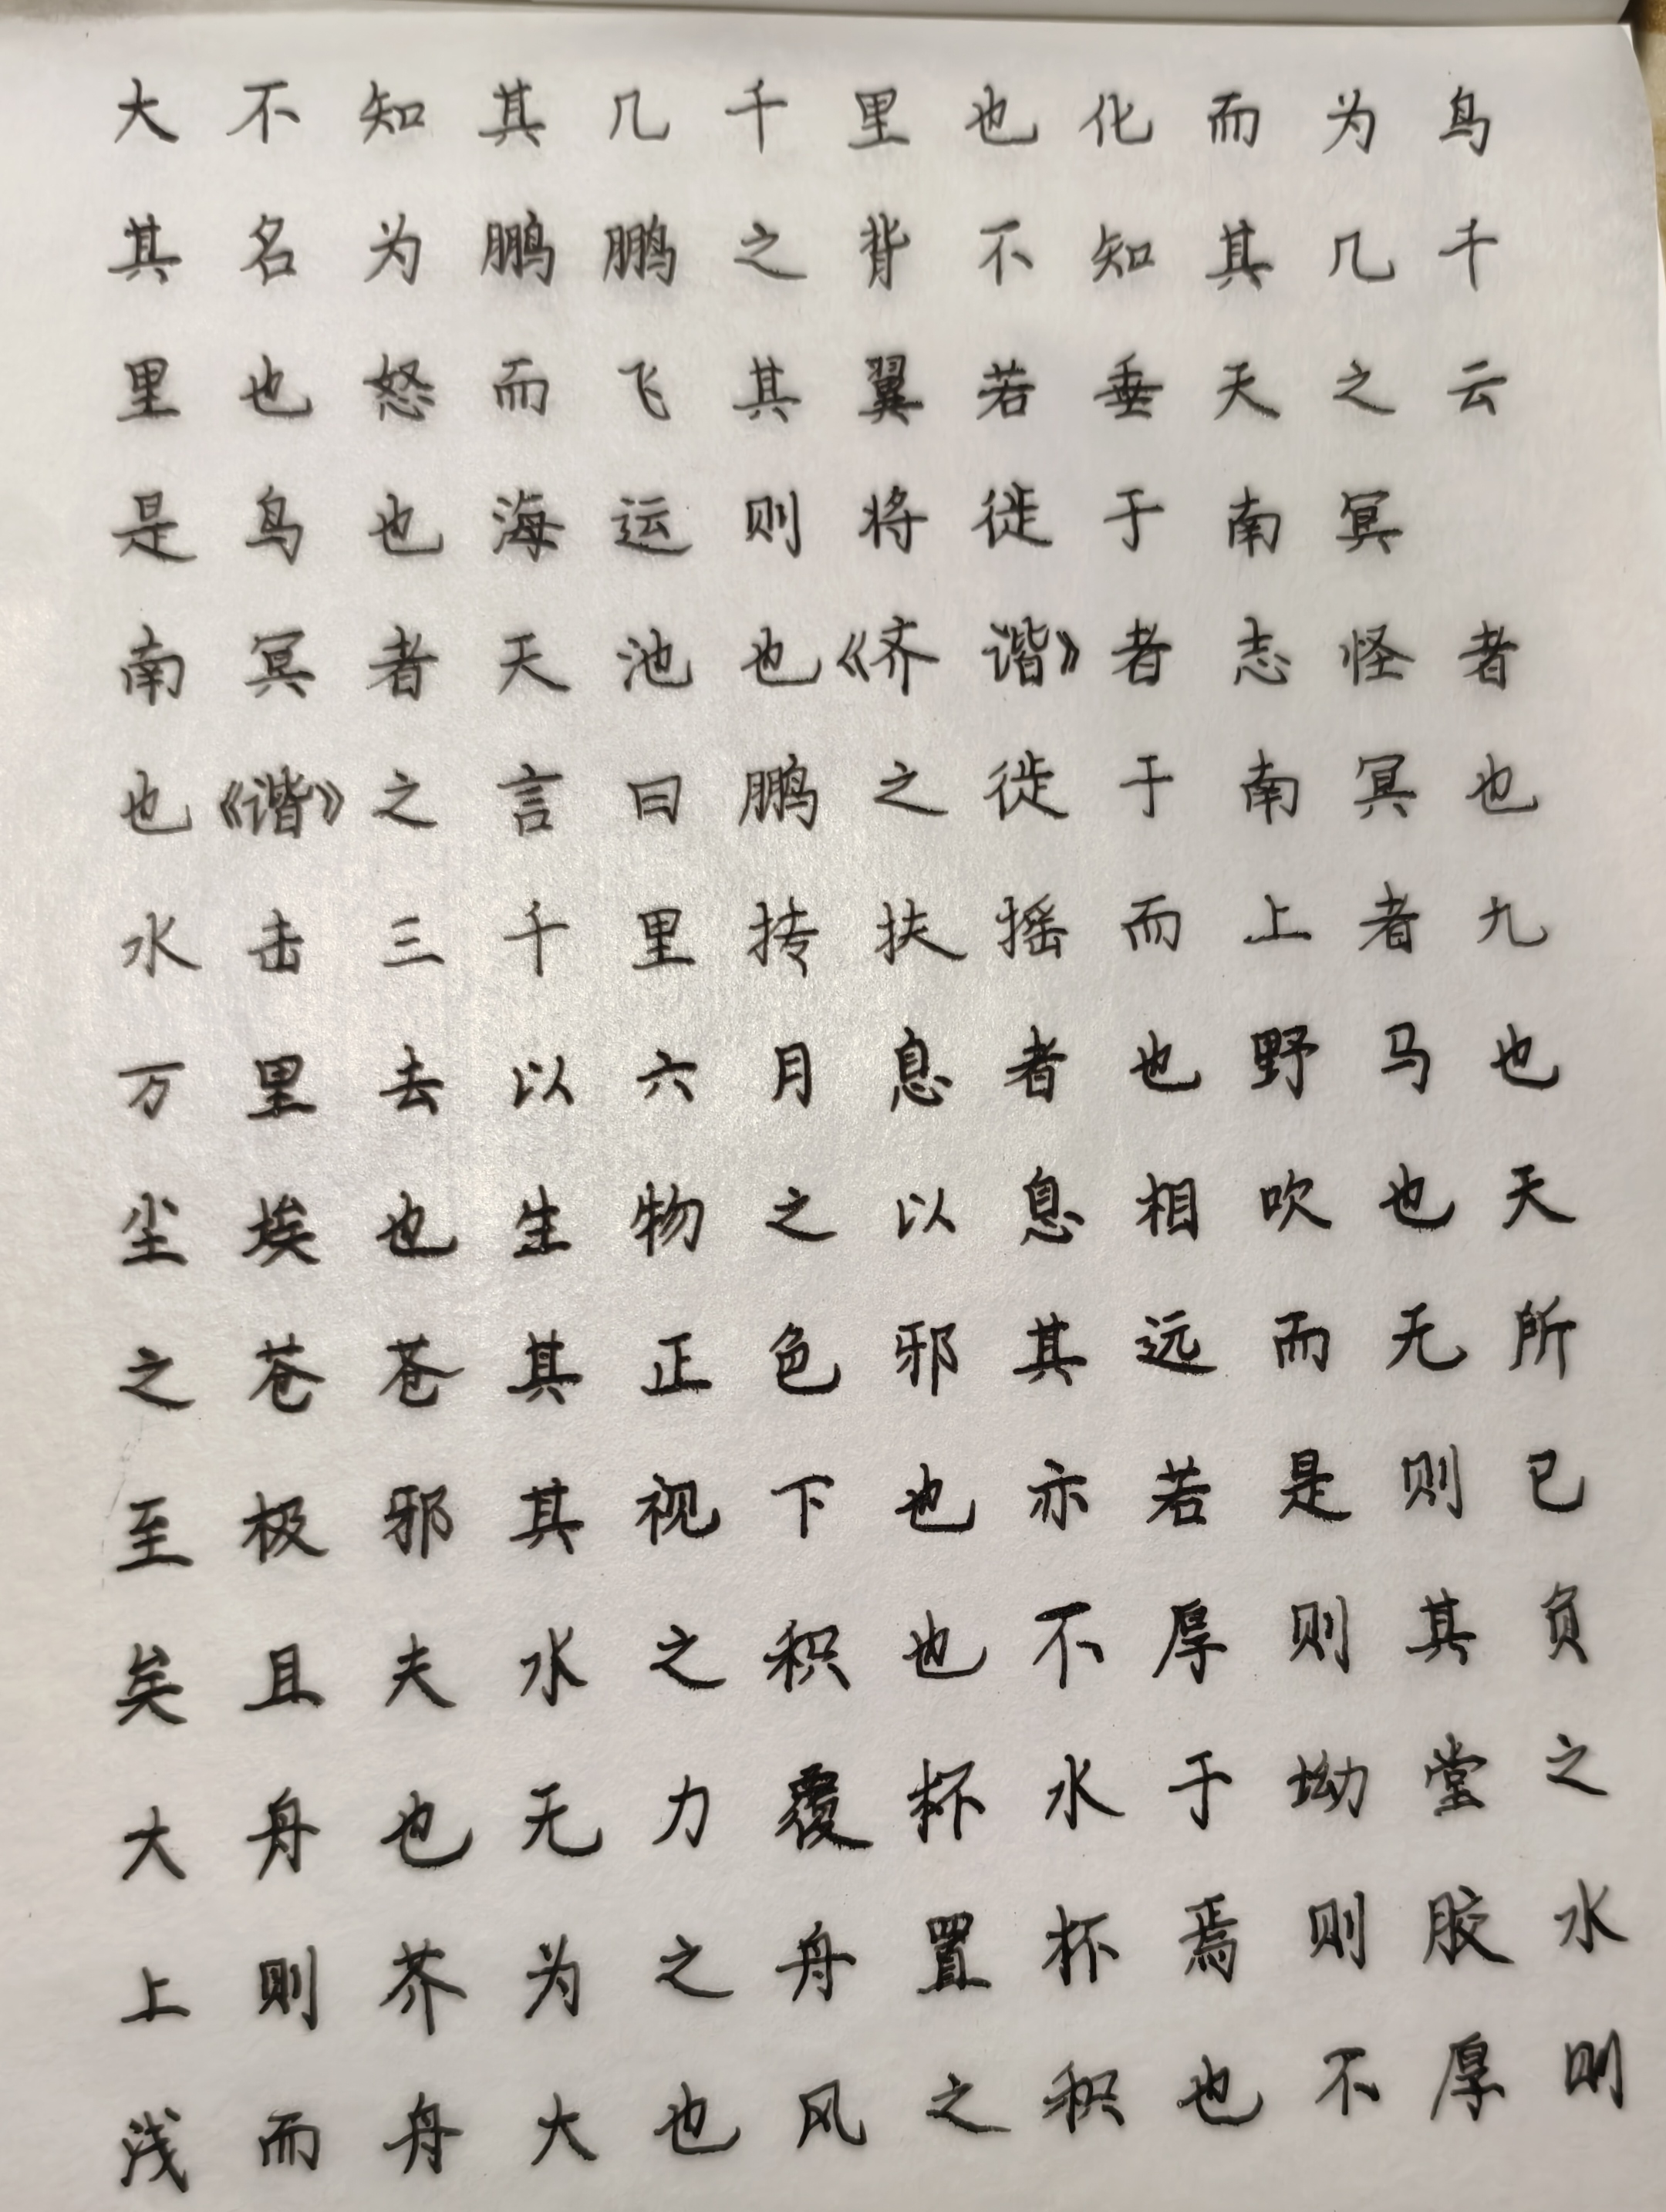 大不知其几千里也化而为鸟
其名为鹏鹏之背不知其几千
里也怒而飞其翼若垂天之云
是鸟也海运则将徙于南冥
南冥者天池也《齐谐》者志怪者
也《谐》之言曰鹏之徙于南冥也
水击三千里抟扶摇而上者九
万里去以六月息者也野马也
尘埃也生物之以息相吹也天
之苍苍其正色邪其远而无所
至极邪其视下也亦若是则已
矣且夫水之积也不厚则其负
大舟也无力覆杯水于坳堂之
上则芥为之舟置杯焉则胶水
浅而舟大也风之积也不厚则